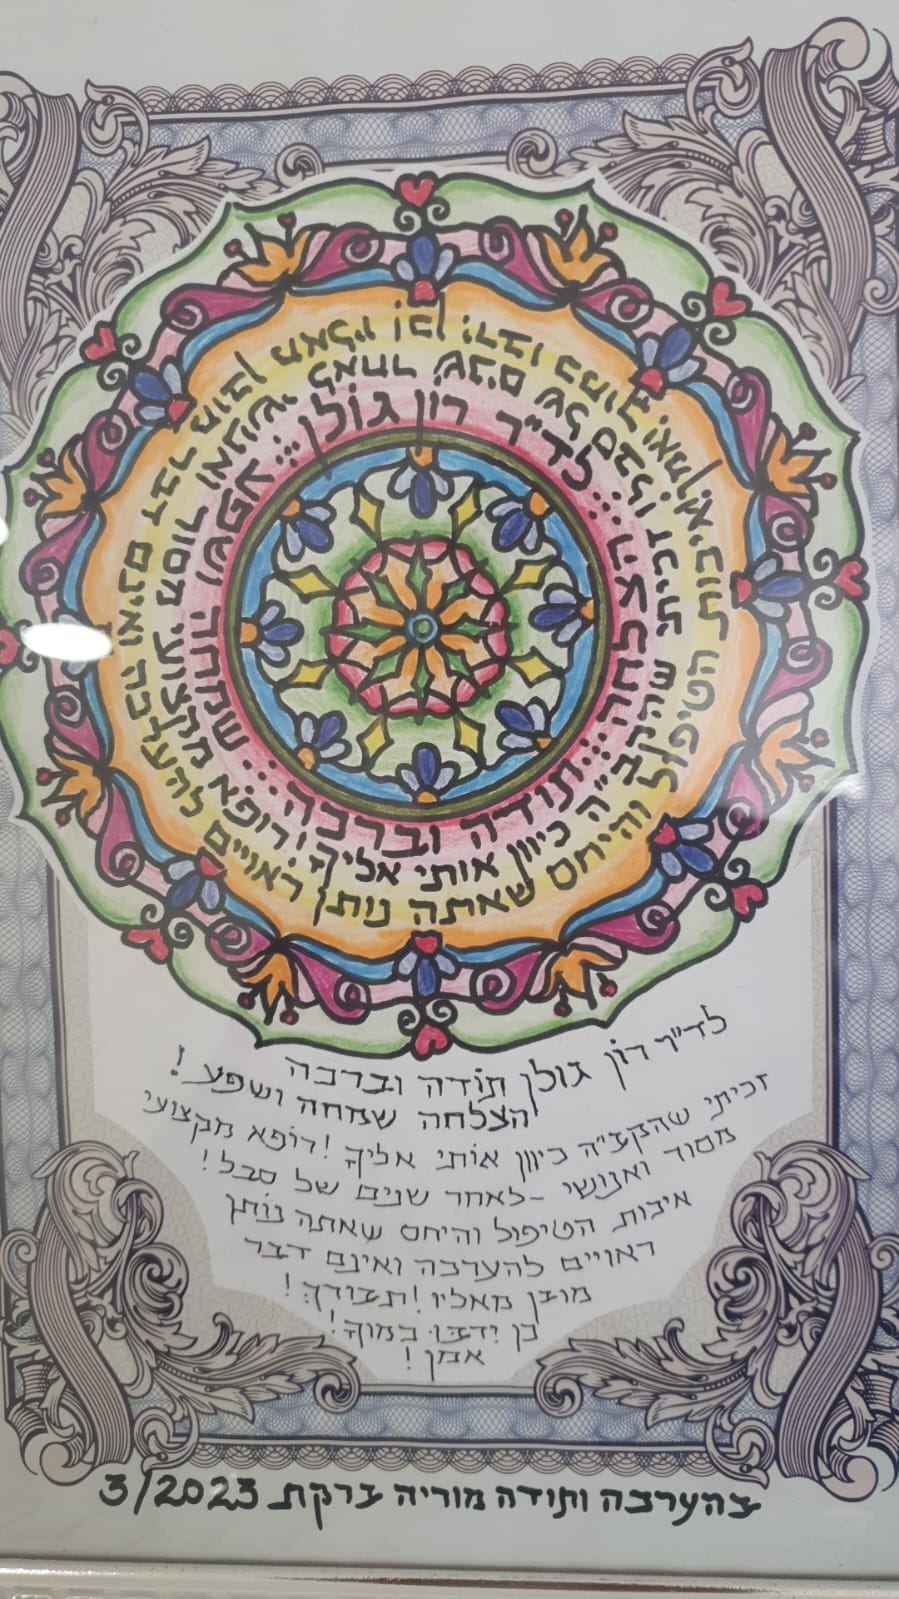 לד"ר רון גולן... הצלחה... תודה וברכה... שמחה ושפע...
לאחר שנים של סבל! זכיתי שהקב"ה כיוון אותי אליך! רופא מקצועי מסור ואנושי
איכות הטיפול והיחס שאתה נותן ראויים להערכה ואינם דבר מובן מאליו! כן ירבו כמוך! אמן!
לד"ר רון גולן תודה וברכה
הצלחה שמחה ושפע!
זכיתי שהקב"ה כיוון אותי אליך! רופא מקצועי
מסור ואנושי - לאחר שנים של סבל!
איכות הטיפול והיחס שאתה נותן
ראויים להערכה ואינם דבר
מובן מאליו! תבורך!
כן ירבו כמוך!
אמן!
בהערכה ותודה מוריה ברקת 3/2023